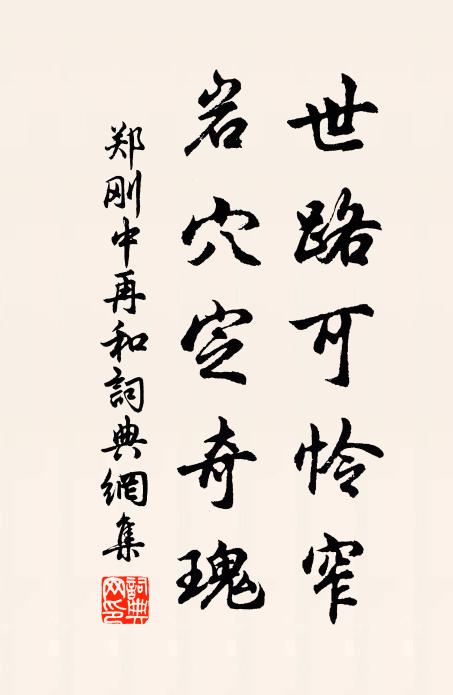 世路可怜窄
岩穴定奇瑰
郑刚中再和詞典網集
詞典网印